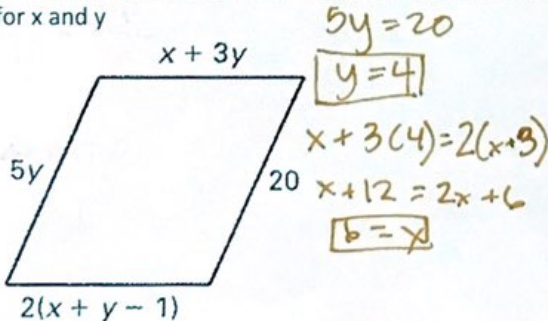 for x and y
x + 3y
5y
20
2(x + y − 1)
5y = 20
y = 4
x + 3(4) = 2(x+3)
x + 12 = 2x + 6
6 = x